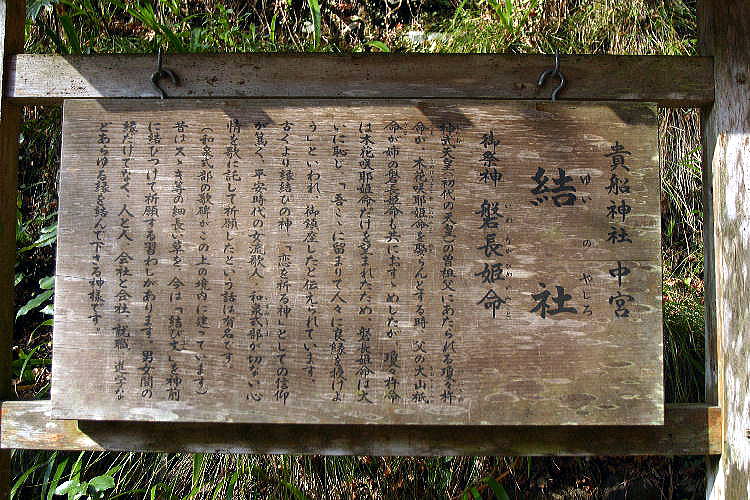 貴船神社 中宮
結社
ゆい の やしろ
御祭神 磐長姫命
いわ ながひめの みこと
神武天皇(初代の天皇)の曽祖父にあたられる瓊々杵
命が、木花咲耶姫命を娶らんとする時、父の大山祇
命が姉の磐長姫命も共におすゝめしたが、瓊々杵命
は木花咲耶姫命だけを望まれたため、磐長姫命は大
いに恥じ、「吾こゝに留まりて人々に良縁を授けよ
う」といわれ、御鎮座したと伝えられています。
古くより縁結びの神、「恋を祈る神」としての信仰
が篤く、平安時代の女流歌人・和泉式部が切ない心
情を歌に託して祈願したという話は有名です。
(和泉式部の歌碑がこの上の境内に建っています)
昔はスゝき等の細長い草を、今は「結び文」を神前
に結びつけて祈願する習わしがあります。男女間の
縁だけでなく、人と人、会社と会社、就職、進学な
どあらゆる縁を結んで下さる神様です。